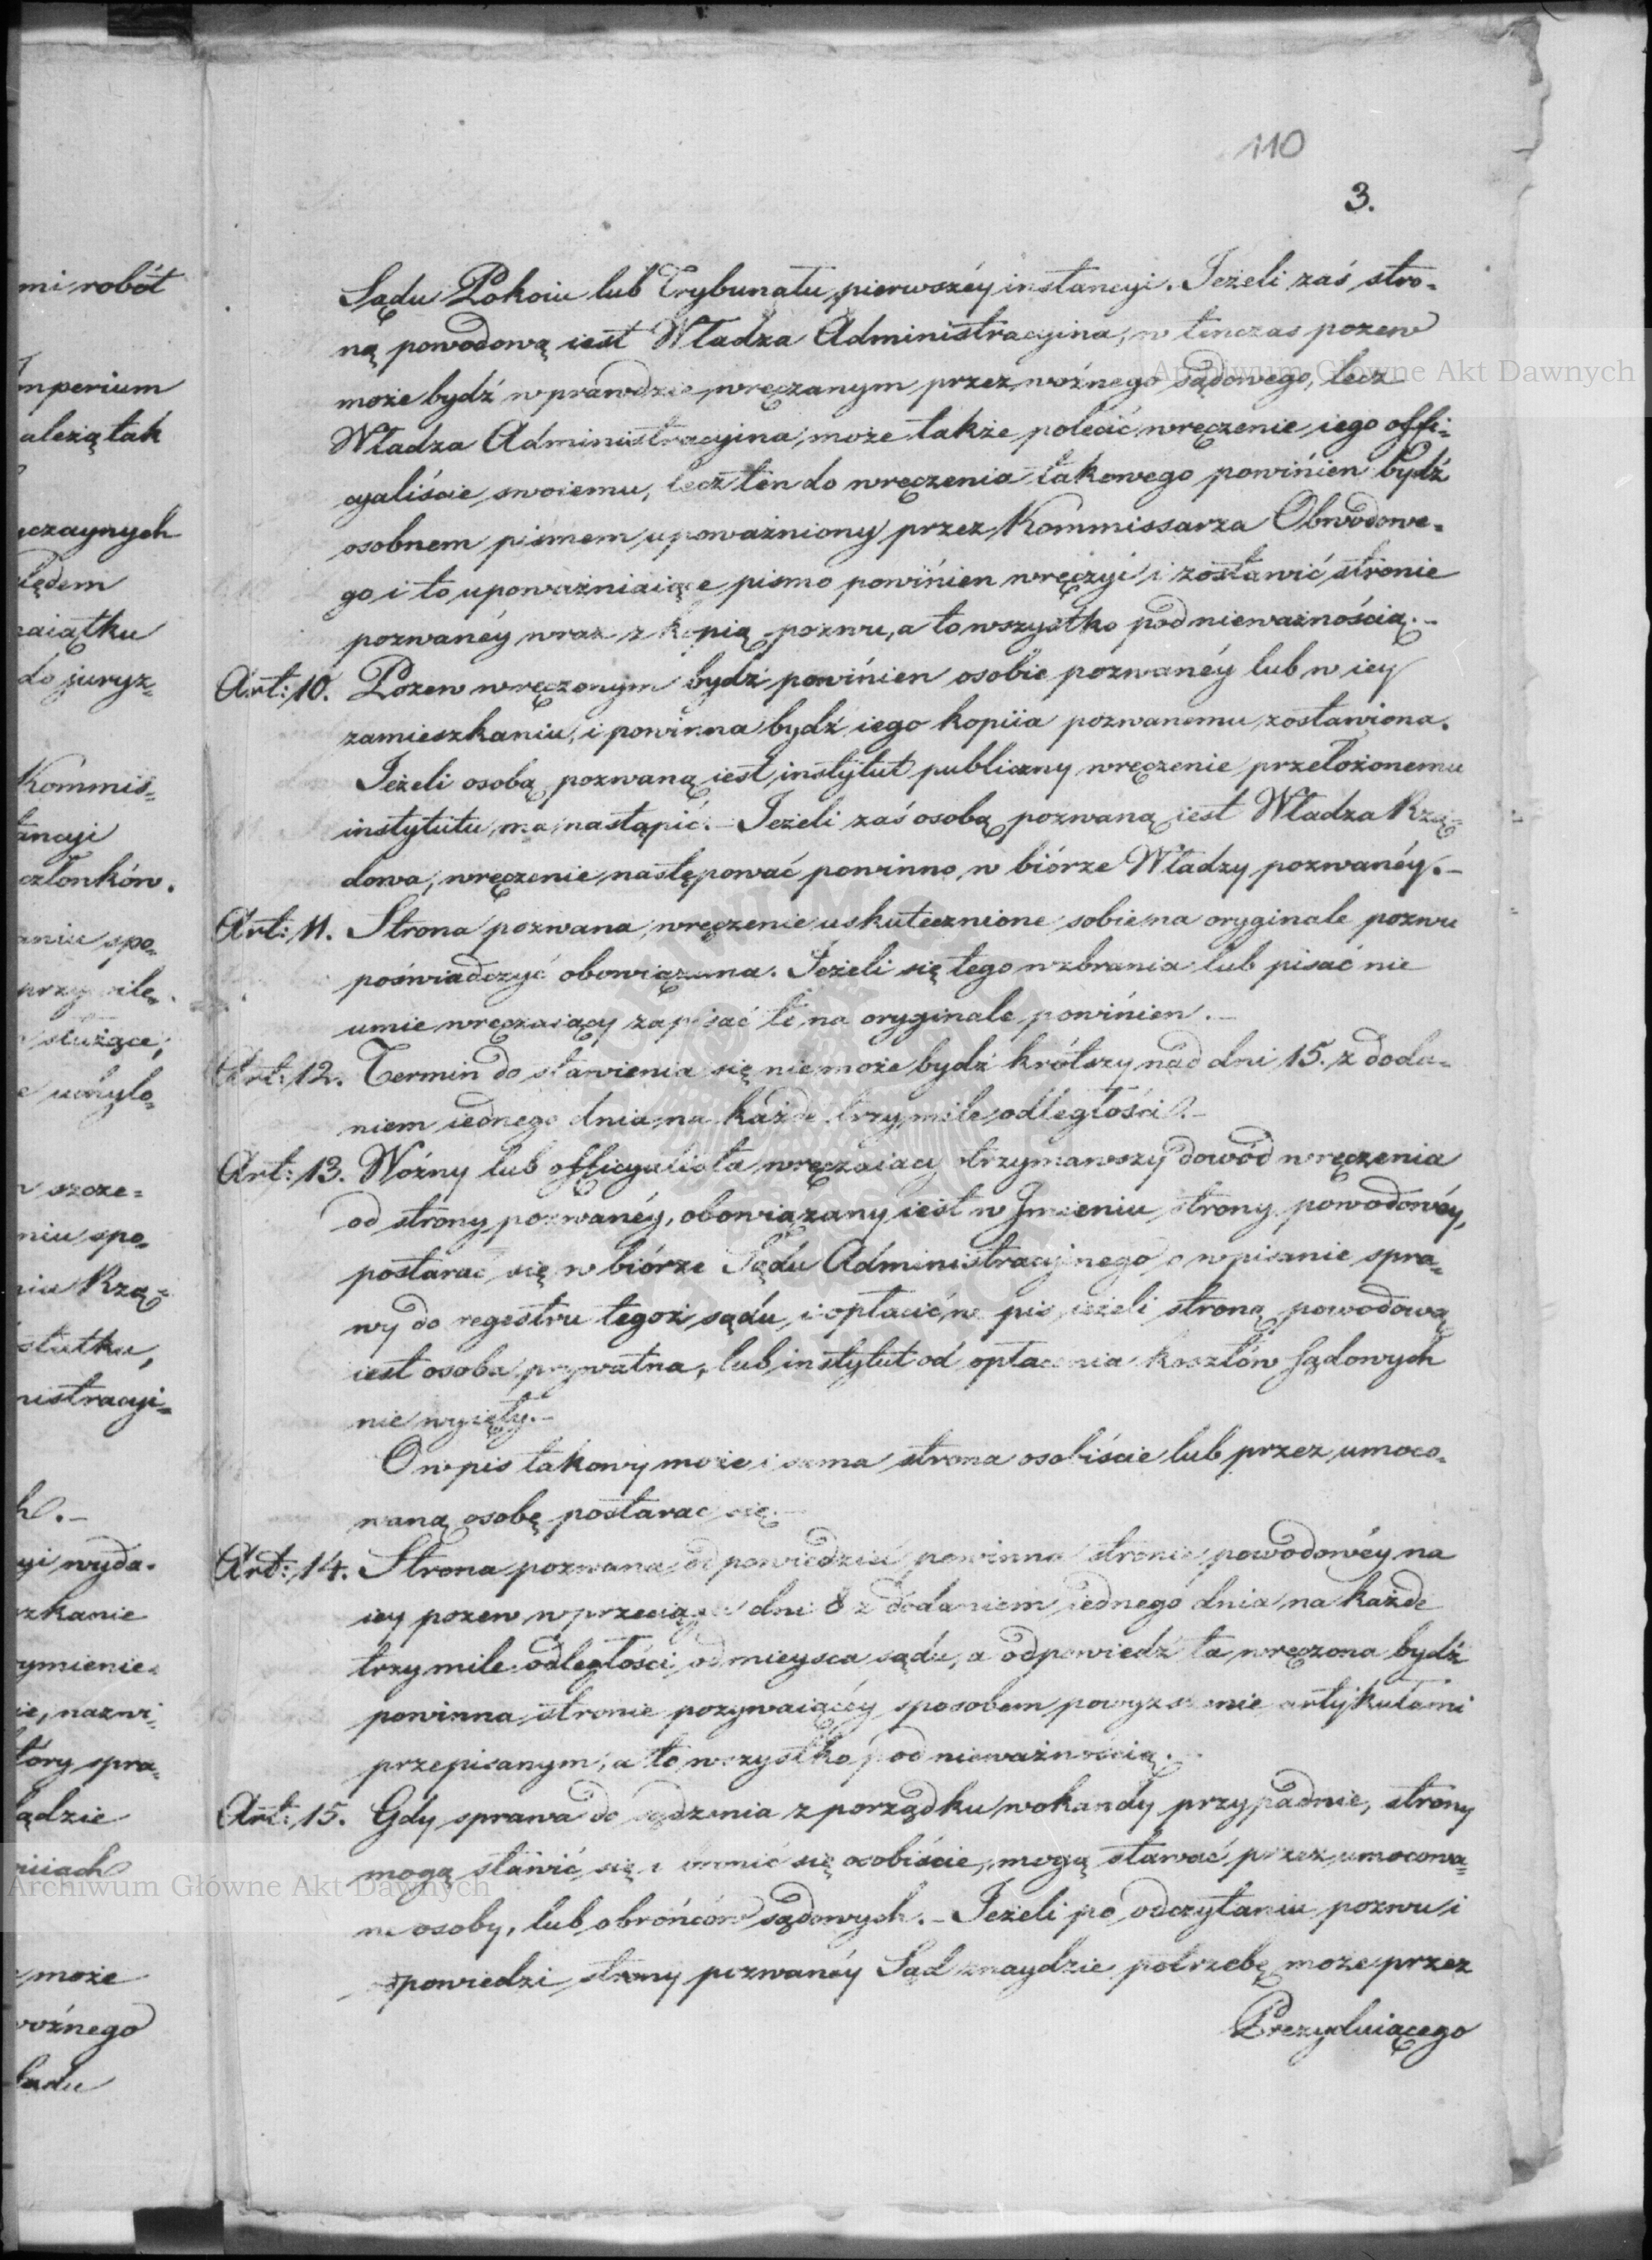 110
3.
Sądu Pokoiu lub Trybunału pierwszéy instancyi. Jeżeli zaś stro-
ną powodową iest Władza Administracyina, w tenczas pozew
może bydź wprawdzie wręczanym przez woźnego sądowego, lecz
Władza Administracyina może także polecić wręczenie iego offi-
cyaliście swoiemu, lecz ten do wręczenia takowego powinien bydź
osobnem pismem upoważniony przez Kommissarza Obwodowe-
go i to upoważniaiące pismo powinien wręczyć i zostawić stronie
pozwanéy wraz z kopią pozwu, a to wszystko pod nieważnością.-
Art: 10. Pozew wręczonym bydź powinien osobie pozwanéy lub w iey
zamieszkaniu, i powinna bydź iego kopiia pozwanemu zostawiona.
Jeżeli osobą pozwaną iest instytut publiczny wręczenie przełożonemu
instytutu ma nastąpić.- Jeżeli zaś osobą pozwaną iest Władza Rzą-
dowa, wręczenie następować powinno w biórze Władzy pozwanéy.-
Art: 11. Strona pozwana wręczenie uskutecznione sobie na oryginale pozwu
poświadczyć obowiązana. Jeżeli się tego wzbrania lub pisać nie
umie wręczaiący zapisać to na oryginale powinien.-
Art: 12. Termin do stawienia się nie może bydź krótszy nad dni 15. z doda-
niem iednego dnia na każde trzy mile odległości.-
Art: 13. Woźny lub officyalista wręczaiący otrzymawszy dowód wręczenia
od strony pozwanéy, obowiązany iest w Imieniu strony powodowéy,
postarać się w biórze Sądu Administracyinego o wpisanie spra-
wy do regestru tegoż sądu, i opłacić wpis ieżeli stroną powodową
iest osoba prywatna, lub instytut od opłacenia kosztów sądowych
nie wyięty.-
O wpis takowy może i sama strona osobiście lub przez umoco-
waną osobę postarać się.-
Art: 14. Strona pozwana odpowiedzieć powinna stronie powodowéy na
iey pozew w przeciągu dni 8 z dodaniem iednego dnia na każde
trzy mile odległości od mieysca sądu, a odpowiedź ta wręczona bydź
powinna stronie pozywaiącéy sposobem powyższemi artykułami
przepisanym, a to wszystko pod nieważnością.-
Art: 15. Gdy sprawa do sądzenia z porządku wokandy przypadnie, strony
mogą stawić się i bronić się osobiście, mogą stawać przez umocowa-
ne osoby, lub obrońców sądowych.- Jeżeli po odczytaniu pozwu i
odpowiedzi strony pozwanéy Sąd znaydzie potrzebę może przez
Prezyduiącego
mi robót
Imperium
należą tak
maiątku
do juryz-
Kommis-
członków.
służące,
niu spo-
nistracyi-
wyda-
może
woźnego
Archiwum Główne Akt Dawnych
Archiwum Główne Akt Dawnych